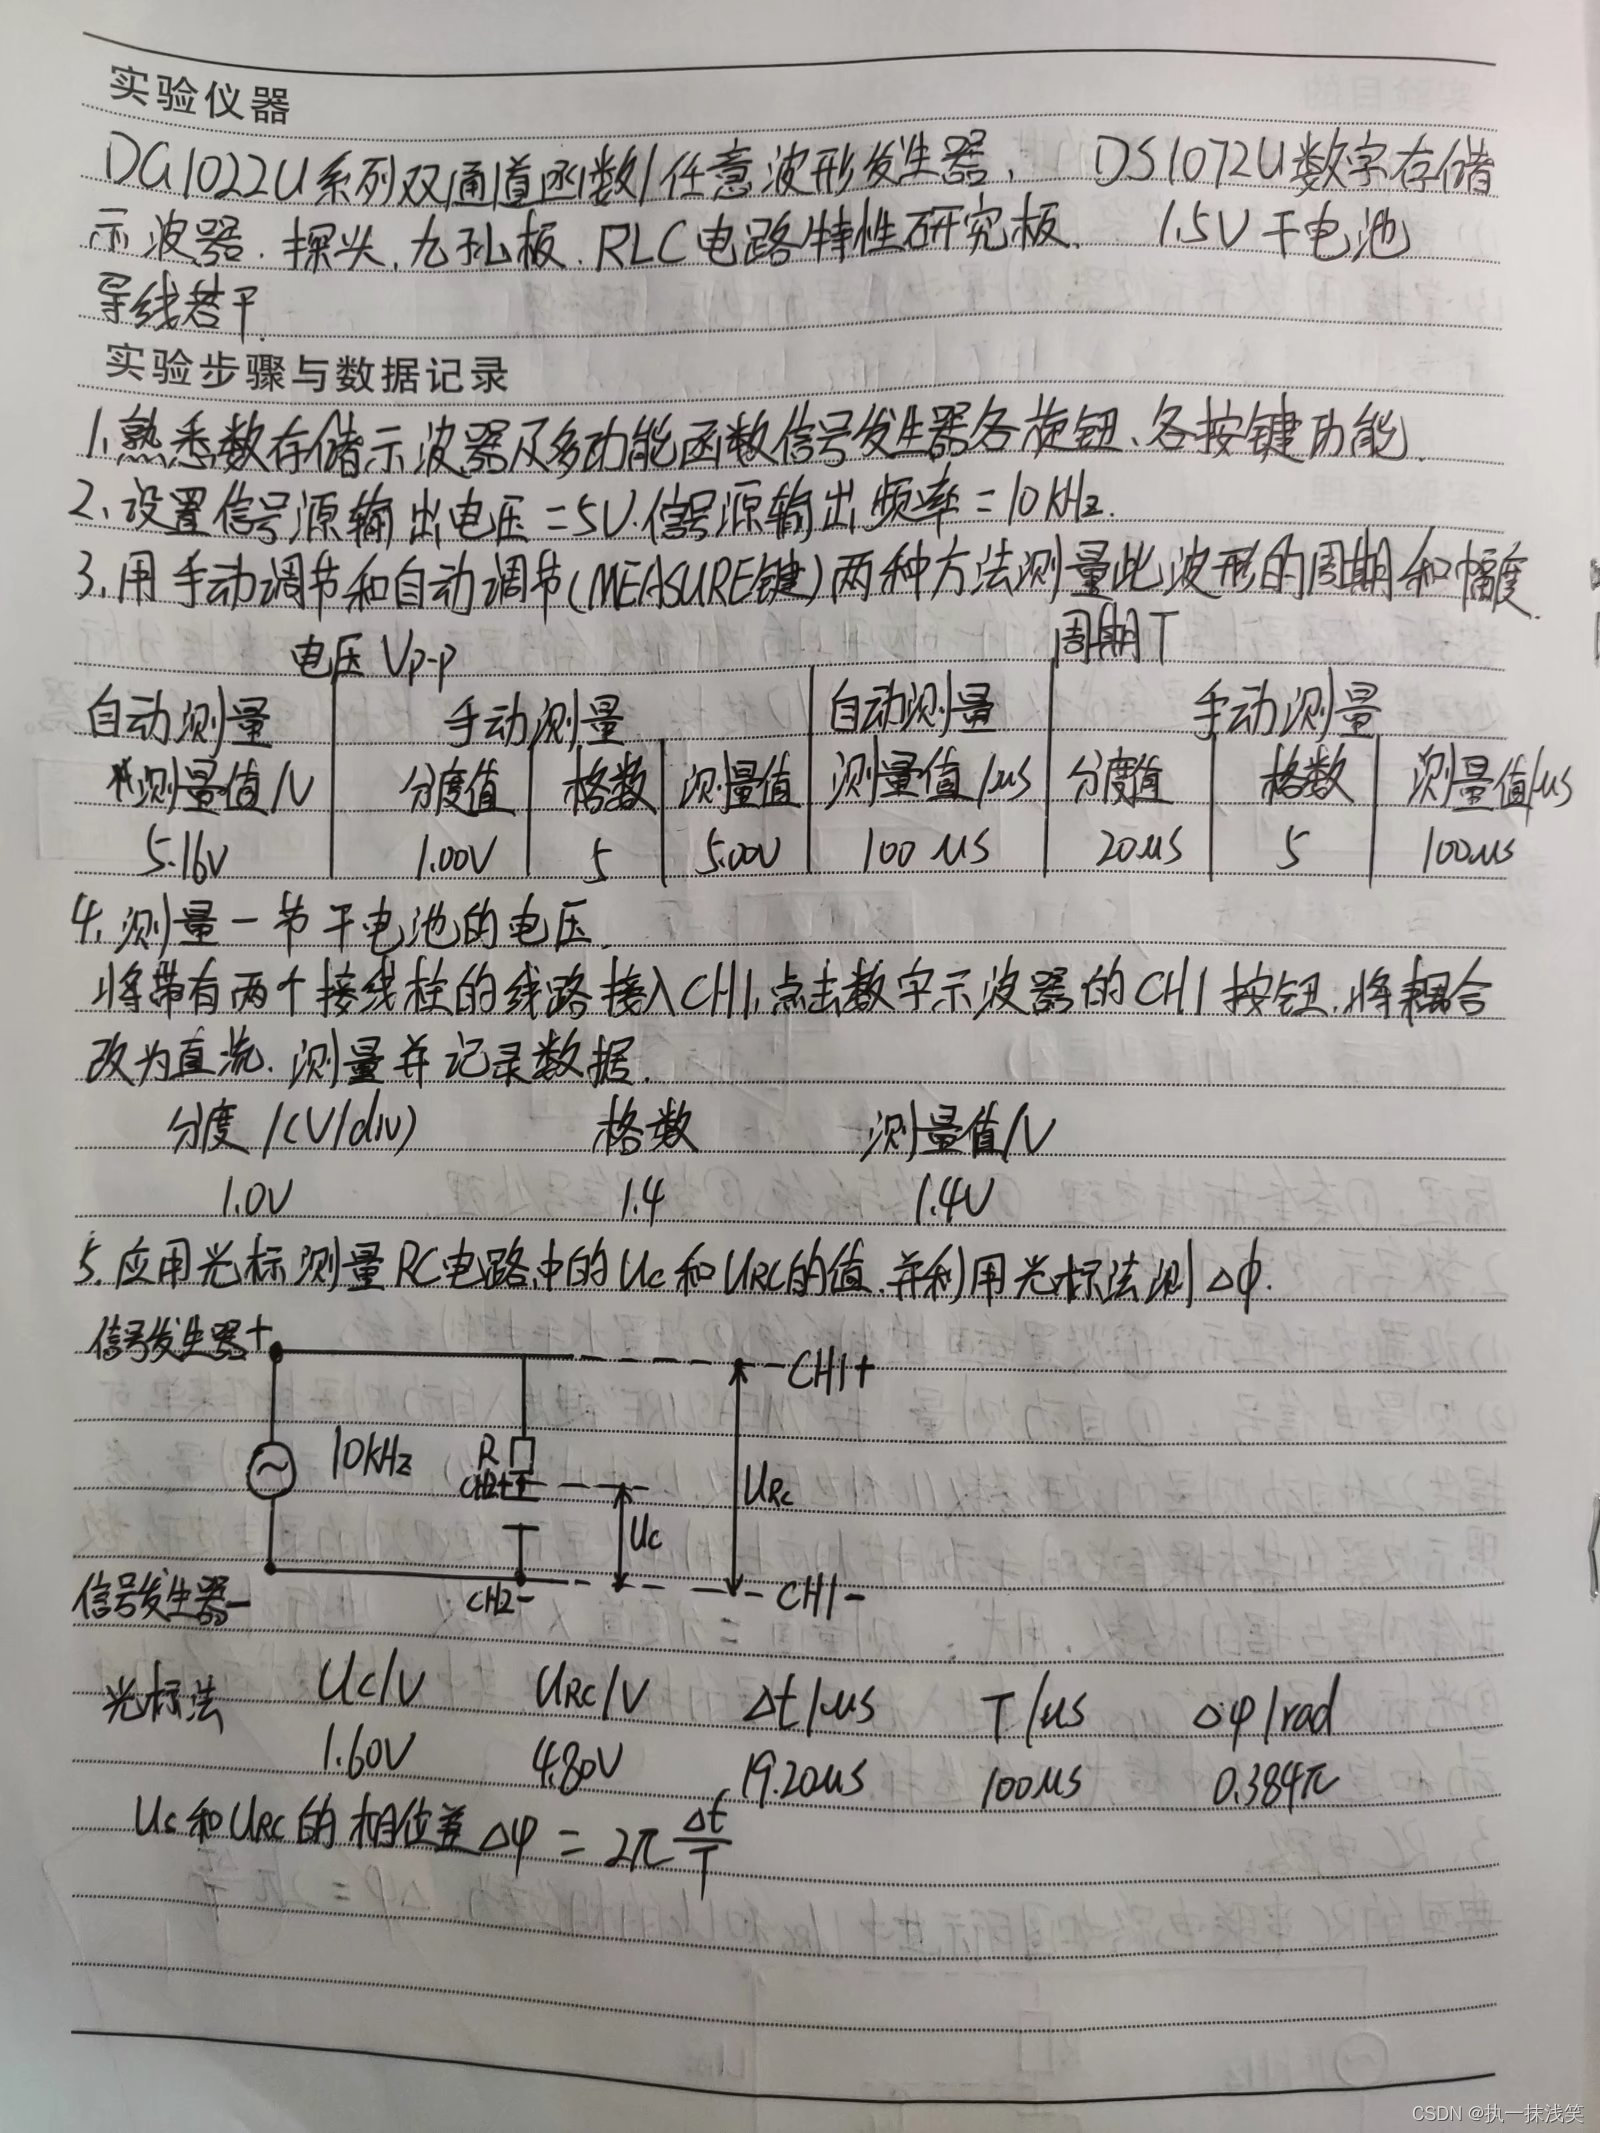 实验仪器
DG1022U系列双通道函数/任意波形发生器、 DS1072U数字存储
示波器、探头、九孔板、RLC电路特性研究板、 1.5V干电池
导线若干.
实验步骤与数据记录
1.熟悉数存储示波器及多功能函数信号发生器各旋钮、各按键功能.
2.设置信号源输出电压=5V.信号源输出频率=10KHz.
3.用手动调节和自动调节(MEASURE键)两种方法测量此波形的周期和幅度.
电压Vp-p 周期T
自动测量 手动测量 自动测量 手动测量
测量值/V 分度值 格数 测量值 测量值/μs 分度值 格数 测量值/μs
5.16V 1.00V 5 5.00V 100μs 20μs 5 100μs
4.测量一节干电池的电压.
将带有两个接线柱的线路接入CH1,点击数字示波器的CH1按钮,将耦合
改为直流.测量并记录数据.
分度/(V/div) 格数 测量值/V
1.0V 1.4 1.4V
5.应用光标测量RC电路中的Uc和URC的值.并利用光标法测△φ.
信号发生器+
CH1+
10KHz R
CH2+
URC
Uc
信号发生器-
CH2-
CH1-
光标法 Uc/V URC/V △t/μs T/μs △φ/rad
1.60V 4.80V 19.20μs 100μs 0.384π
Uc和URC的相位差△φ=2π △t/T
CSDN @执一抹浅笑